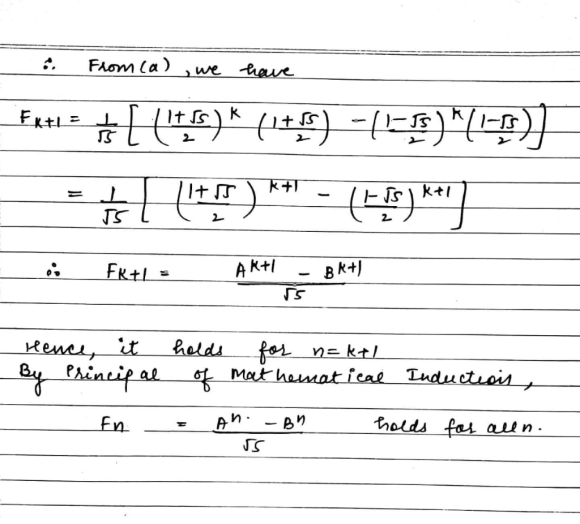 ∴ From (a), we have
F_{K+1} = 1/√5 [ ((1+√5)/2)^K ((1+√5)/2) - ((1-√5)/2)^K ((1-√5)/2) ]
= 1/√5 [ ((1+√5)/2)^{K+1} - ((1-√5)/2)^{K+1} ]
∴ F_{K+1} = (A^{K+1} - B^{K+1})/√5
Hence, it holds for n=k+1
By Principal of Mathematical Induction,
Fn = (A^n - B^n)/√5 holds for all n.